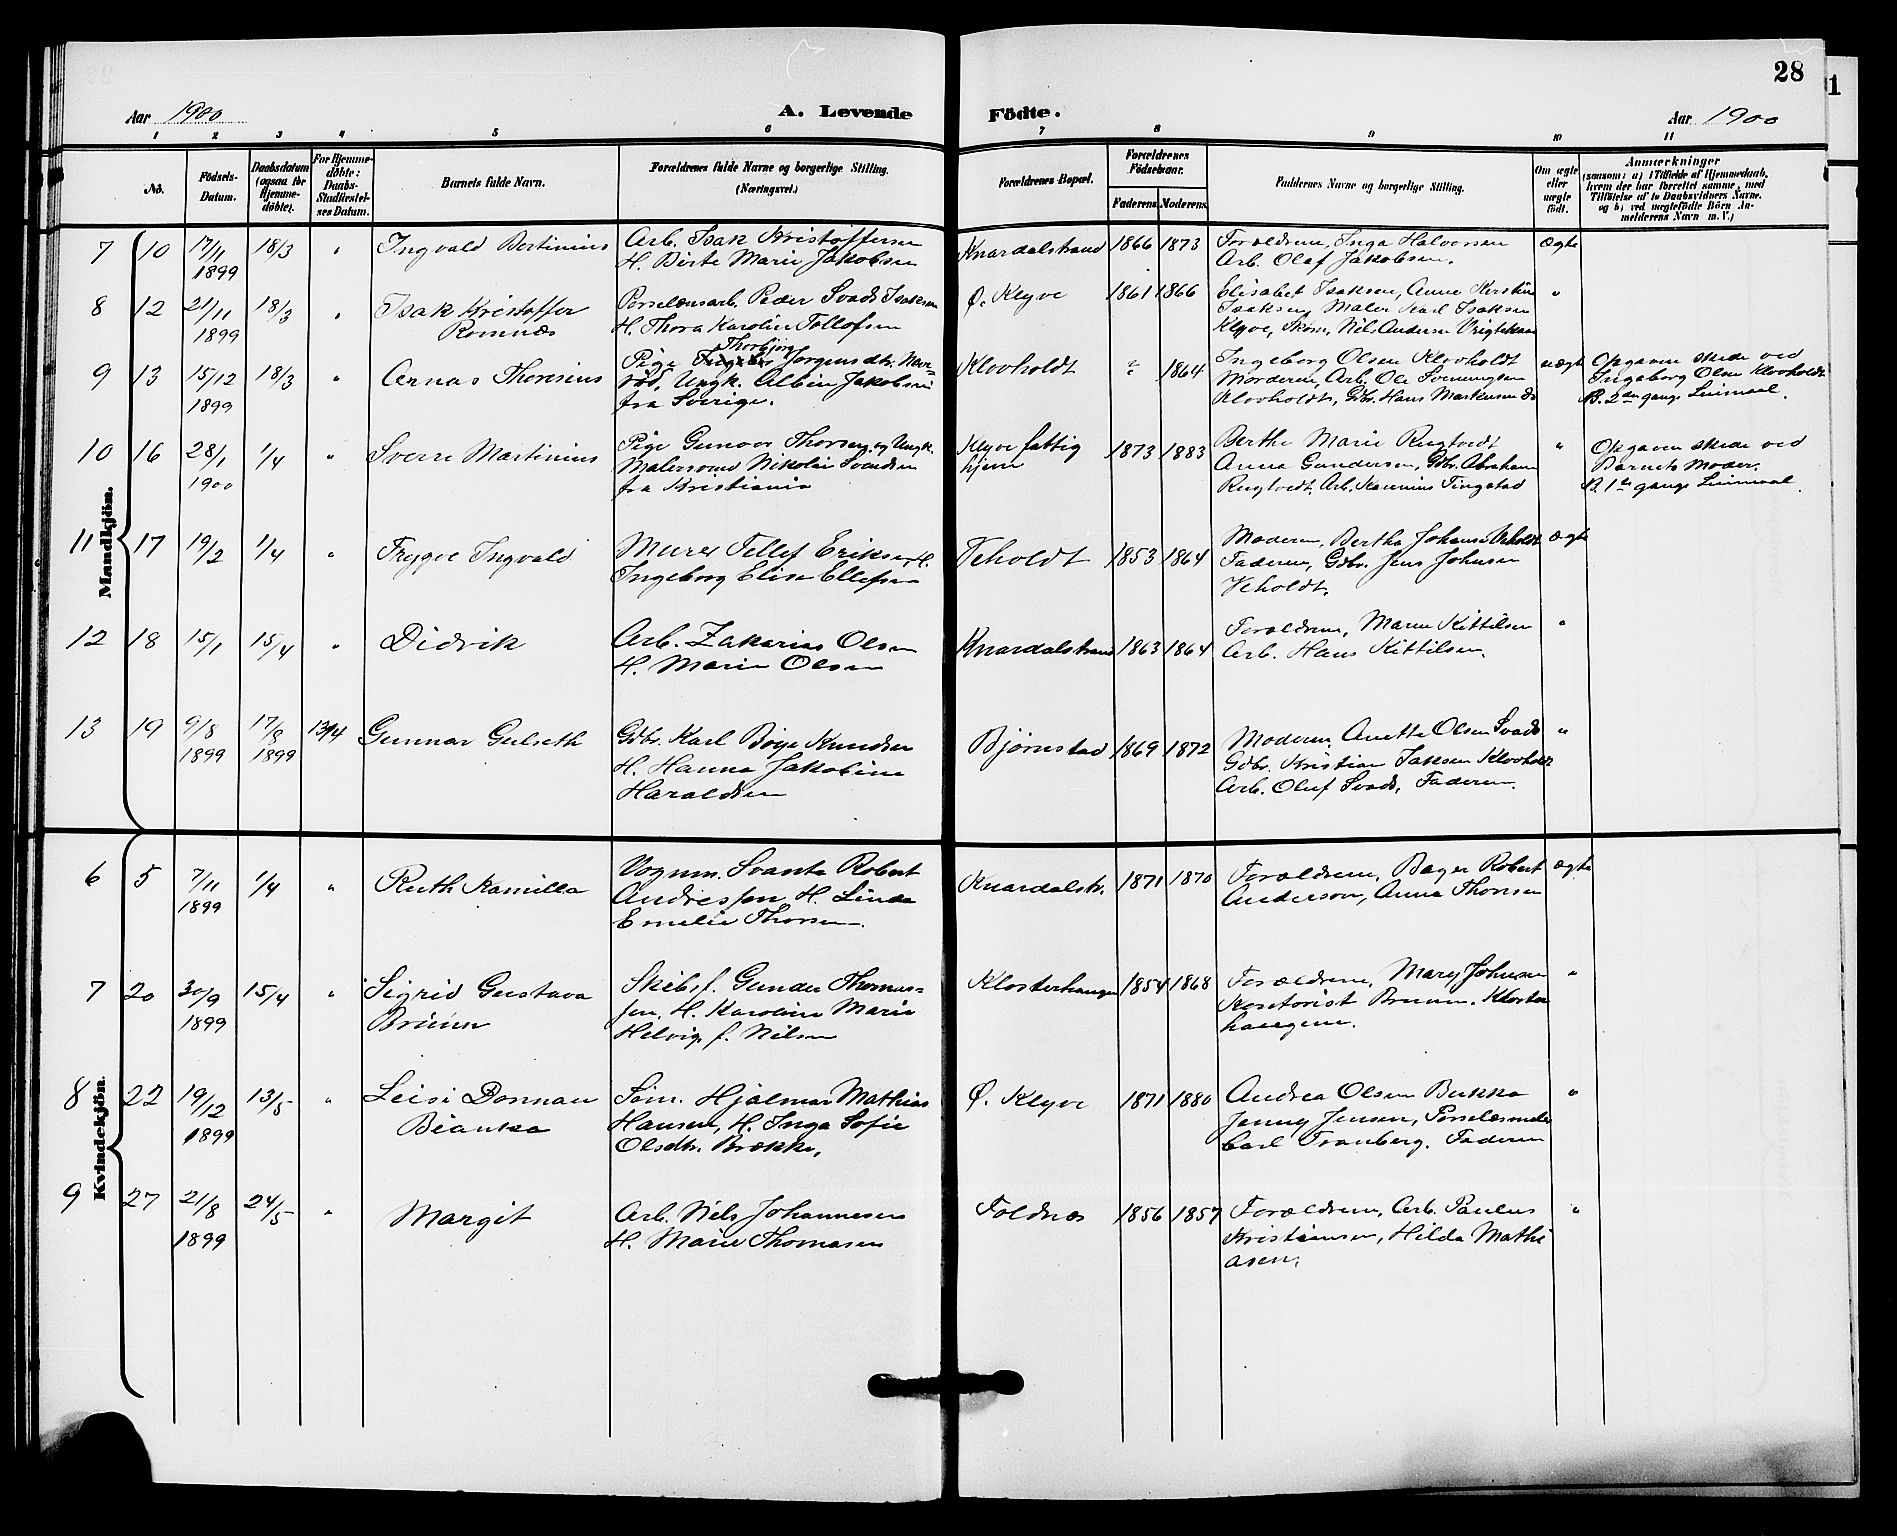 28
1
Aar 1900
A. Levende
Födte.
Aar 1900
1 2 3 4 5 6 7 8 9 10 11
No.
Födsels-
Datum.
Daabsdatum
(ogsaa for
Hjemme-
döbte).
For Hjemme-
döbte:
Daabs-
Stadfæstel-
ses Datum.
Barnets fulde Navn.
Forældrenes fulde Navne og borgerlige Stilling.
(Næringsvei.)
Forældrenes Bopæl.
Forældrenes
Födselsaar.
Faderens. Moderens.
Faddernes Navne og borgerlige Stilling.
Om ægte
eller
uægte
født.
Anmærkninger
(saasom: a) i Tilfælde af Hjemmedaab,
hvem der har forrettet samme, med
Tilföielse af to Daabsvidners Navne.
og b) ved uægtefödte Börn An-
melderens Navn m. V.)
Mandkjön.
7 10 17/11 1899 18/3 " Ingvald Bertinius
Arb. Isak Kristoffersen
H. Birte Marie Jakobsen
Knardalstrand 1866 1873
Forældrene, Inga Halvorsen
Arb. Olaf Jakobsen.
Ægte
8 12 21/11 1899 18/3 " Isak Kristoffer
Romnæs
Porselænsarb. Peder Svads Isaksen
H. Thora Karoline Tollofsen
Ø. Klyve 1861 1866
Elisabet Isaksen, Anne Kirstine
Isaksen, Maler Karl Isaksen
Klyve, Skom. Nils Andersen
"
9 13 15/12 1899 18/3 " Arnas Thoresius
Pige Thorbjørg Jørgensdtr. Nav-
rød, Ungk. Albin Jakobsen
fra Sverige.
Klovholdt ? 1864
Ingeborg Olsen Klovholdt
Moderen, Arb. Ole Svenningsen
Klovholdt, Gdbr. Hans Markussen do
uægte
Opgaven skede ved
Ingeborg Olsen Klovholdt
B. 2den gangs Leiermaal.
10 16 28/1 1900 1/4 " Sverre Martinius
Pige Gunvor Thorsen og Ungk.
Malersvend Nikolai Svendsen
fra Kristiania
Klyve fattig
hjem
1873 1883
Berthe Marie Rugtvedt
Anna Gundersen, Gdbr. Abraham
Rugtvedt, Arb. Karenius Tingstad
"
Opgaven skede ved
Barnets Moder.
B. 1ste gangs Leiermaal.
11 17 19/2 1/4 " Trygve Ingvald
Murer Tellef Eriksen, H.
Ingeborg Elise Ellefsen
Veholdt 1853 1864
Moderen, Berthe Johnsen Veholdt
Faderen, Gdbr. Jens Johnsen
Veholdt.
ægte
12 18 15/1 15/4 " Didrik
Arb. Zakarias Olsen
H. Marie Olsen
Knardalstrand 1863 1864
Forældrene, Maren Kittilsen
Arb. Hans Kittilsen.
"
13 19 9/8 1899 17/8 1899 13/4 Gunnar Gulseth
Gdbr. Karl Böye Knudsen
H. Hanna Jakobine
Haraldsen
Bjørnstad 1869 1872
Moderen Anette Olsen Svads
Gdbr. Kristian Isaksen Klovholdt
Arb. Oluf Svads, Faderen.
"
Kvindekjön.
6 5 7/11 1899 1/4 " Ruth Kamilla
Vognm. Svante Robert
Andressen, H. Linda
Emelie Thorsen.
Knardalstr. 1871 1870
Forældrene, Bager Robert
Anderson, Anna Thorsen
ægte
7 20 30/9 1899 15/4 " Sigrid Gustava
Bruun
Skibsf. Gunder Thomas-
sen, H. Karoline Marie
Helvig f. Nilsen
Klosterhaugen 1854 1868
Forældrene, Mary Johnsen
Kontorist Bruun. Kloster
haugene.
"
8 22 19/12 1899 13/5 " Leisi Donnau
Bianka
Søm. Hjalmar Mathias
Hansen, H. Inga Sofie
Olsdtr. Brække.
Ø. Klyve 1871 1880
Andrea Olsen Bukka
Jenny Jensen, Porselæsmaler
Carl Tranberg. Faderen
"
9 27 21/8 1899 24/5 " Margit
Arb. Nils Johannesen
H. Marie Thomasen
Foldnes 1856 1857
Forældrene, Arb. Paulus
Kristiansen, Hilda Mathi
asen.
"